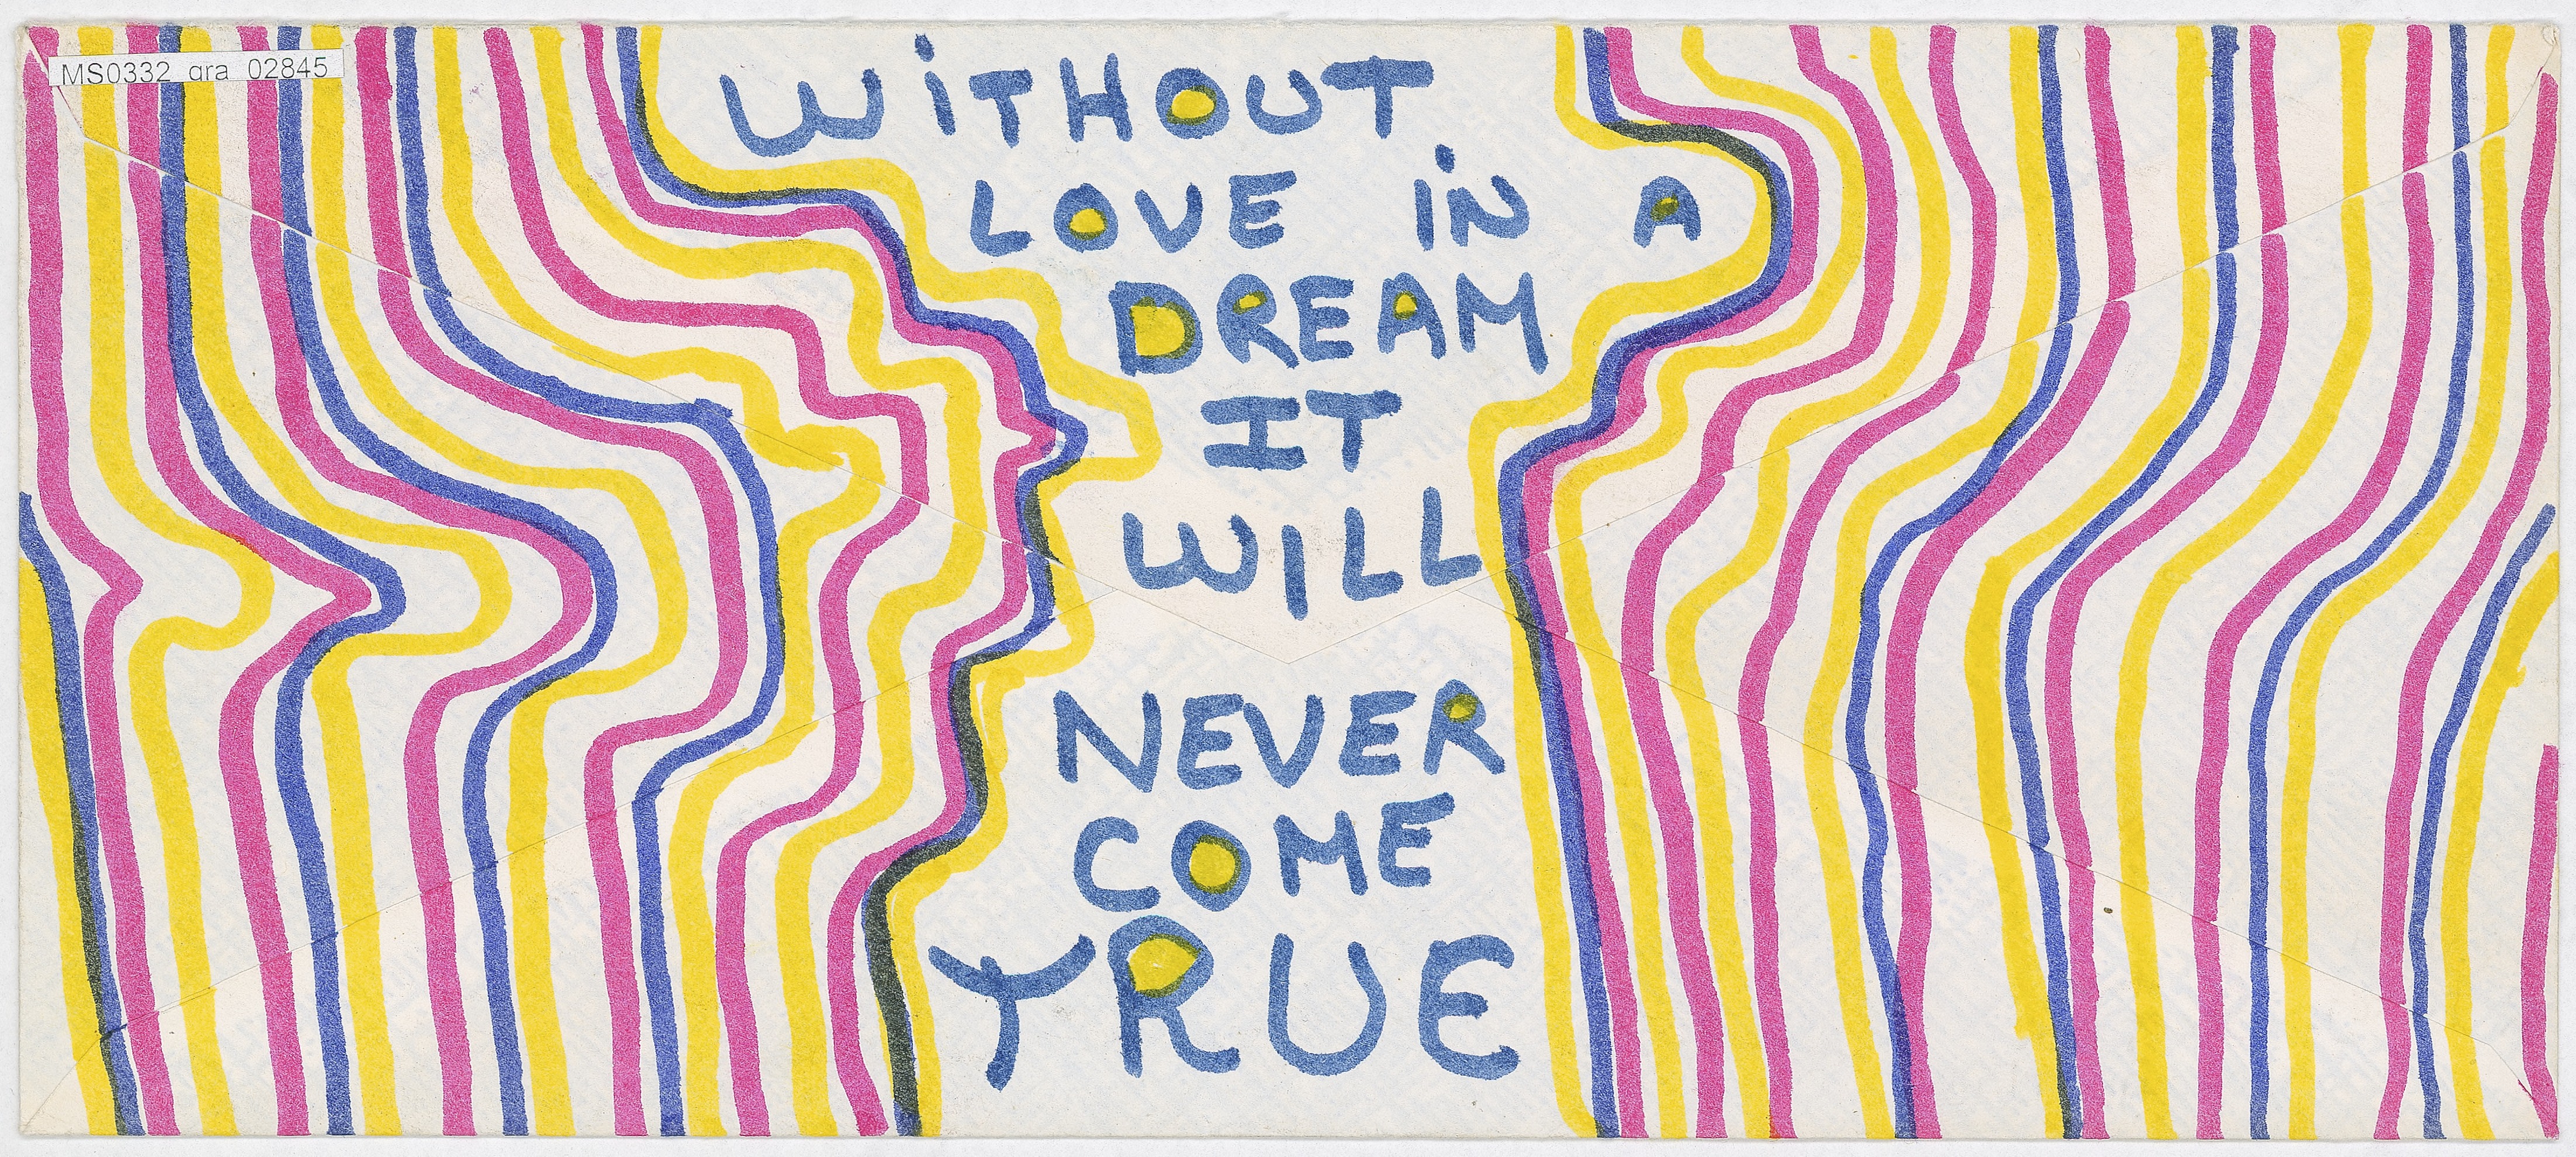 MS0332_gra_02845
WiTHOUT
LOVE iN A
DREAM
IT
WILL
NEVER
COME
TRUE